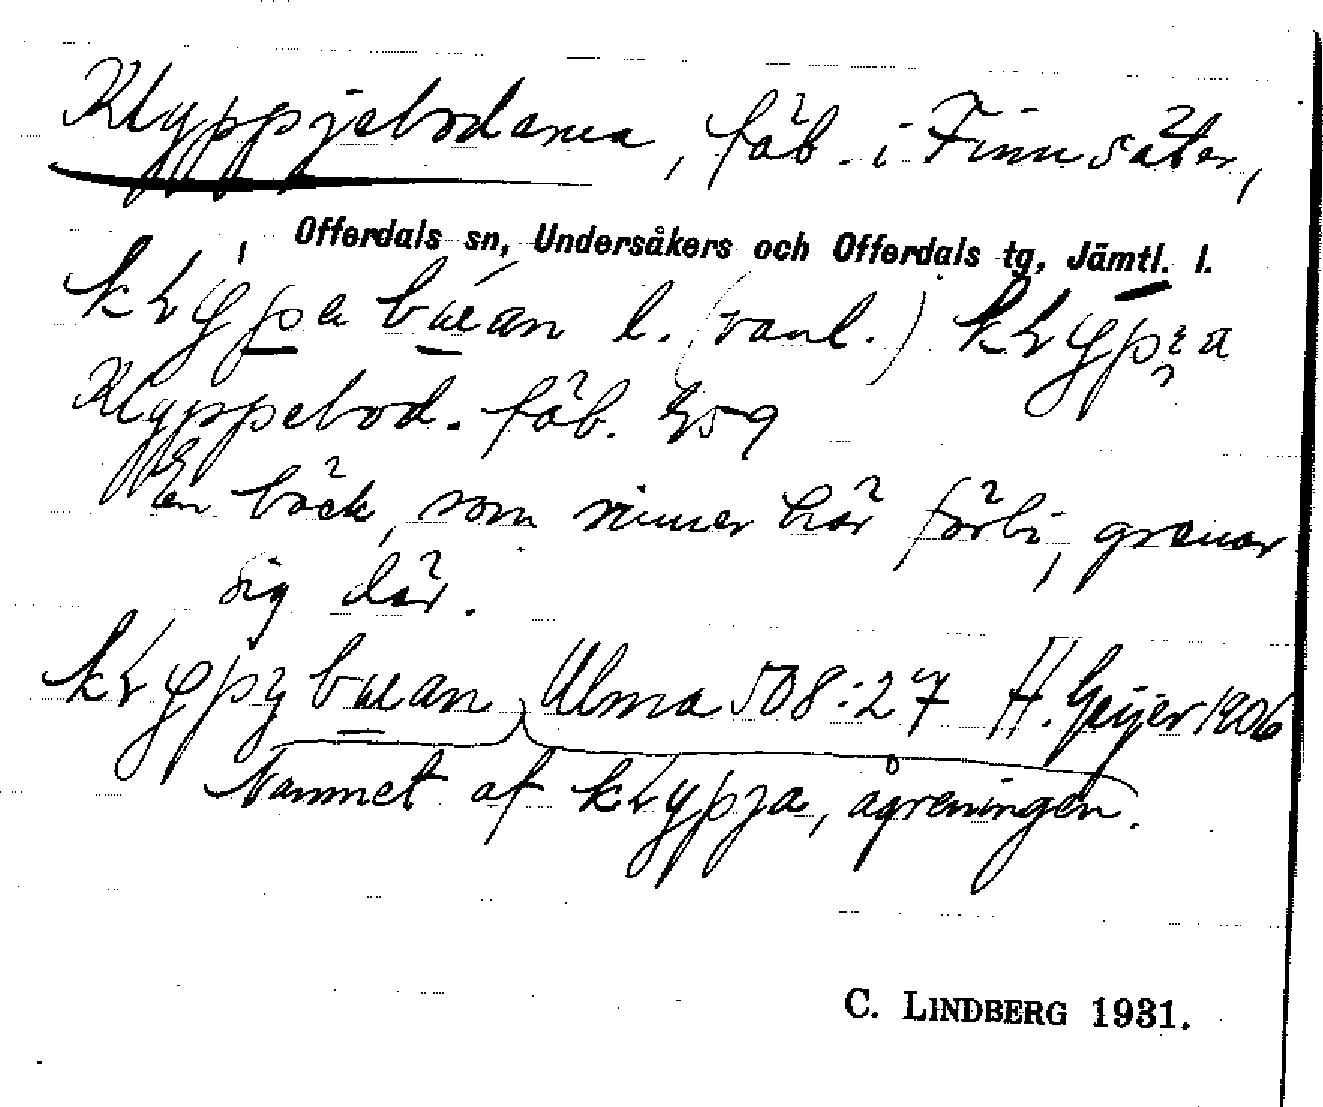 Klyppjebodarna, fäb. i Finnsäter,
Offerdals sn, Undersåkers och Offerdals tg, Jämtl. l.
l. (vanl.)
Klyppebod. fäb. 459
En bäck, som rinner här förbi, grenar
sig där.
Ulma 508:27 H. Geijer 1906
Namnet af kLypja, ågreningen.
C. LINDBERG 1931.